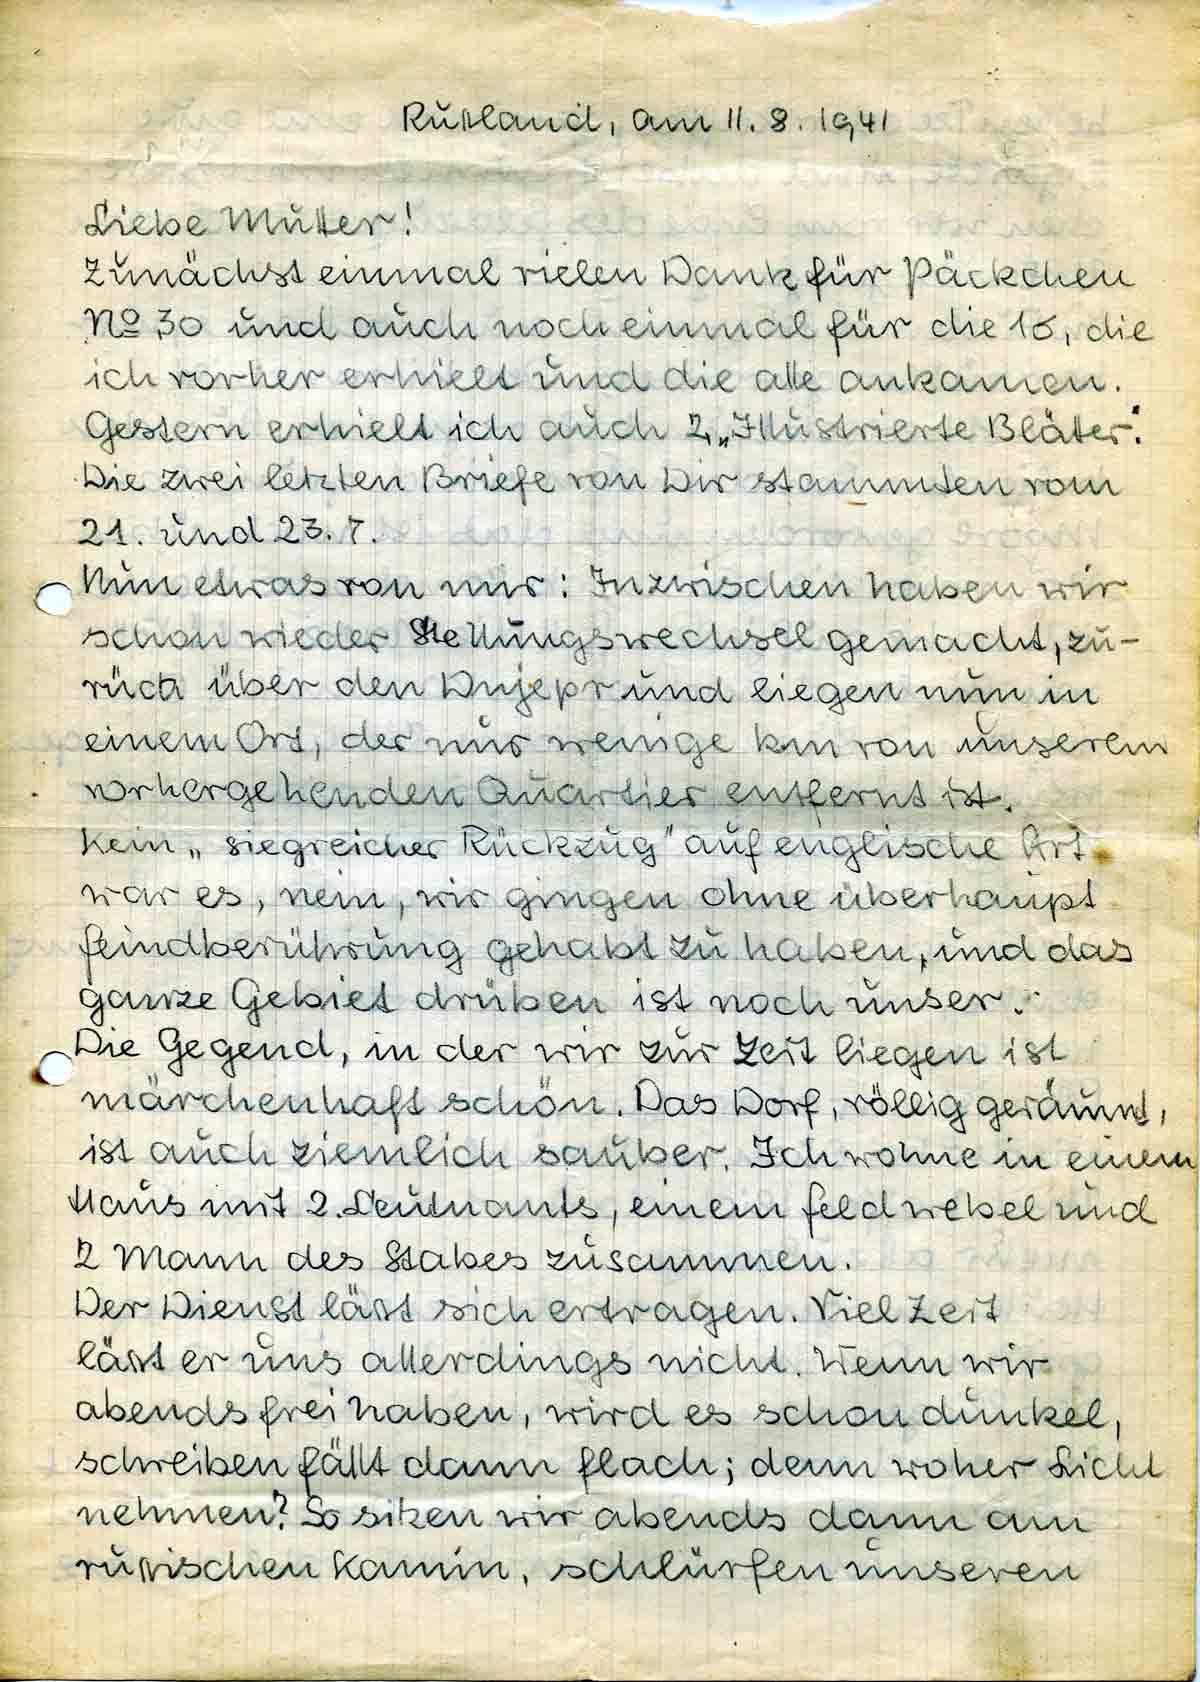 Rußland, am 11.8.1941
Liebe Mutter!
Zunächst einmal vielen Dank für Päckchen
No 30 und auch noch einmal für die 16, die
ich vorher erhielt und die alle ankamen.
Gestern erhielt ich auch 2 „Illustrierte Blätter".
Die zwei letzten Briefe von Dir stammten vom
21. und 23.7.
Nun etwas von mir: Inzwischen haben wir
schon wieder Stellungswechsel gemacht, zu-
rück über den Dnjepr und liegen nun in
einem Ort, der nur wenige km von unserem
vorhergehenden Quartier entfernt ist.
Kein „siegreicher Rückzug" auf englische Art
war es, nein, wir gingen ohne überhaupt
Feindberührung gehabt zu haben, und das
ganze Gebiet drüben ist noch unser.
Die Gegend, in der wir zur Zeit liegen ist
märchenhaft schön. Das Dorf, völlig geräumt,
ist auch ziemlich sauber. Ich wohne in einem
Haus mit 2. Leutnants, einem Feldwebel und
2 Mann des Stabes zusammen.
Der Dienst läßt sich ertragen. Viel Zeit
läßt er uns allerdings nicht. Wenn wir
abends frei haben, wird es schon dunkel,
schreiben fällt dann flach; denn woher Licht
nehmen? So sitzen wir abends dann am
russischen Kamin, schlürfen unseren